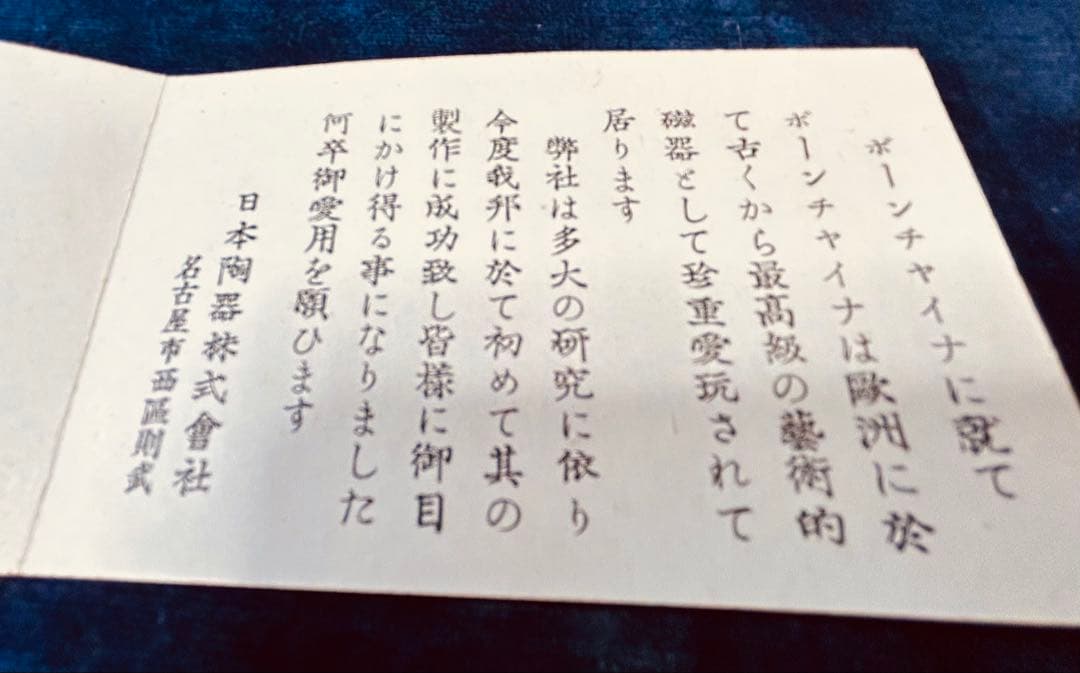 ボーンチャイナに就て
ボーンチャイナは歐洲に於
て古くから最高級の藝術的
磁器として珍重愛玩されて
居ります
弊社は多大の研究に依り
今度我邦に於て初めて其の
製作に成功致し皆様に御目
にかけ得る事になりました
何卒御愛用を願ひます
日本陶器株式會社
名古屋市西區則武